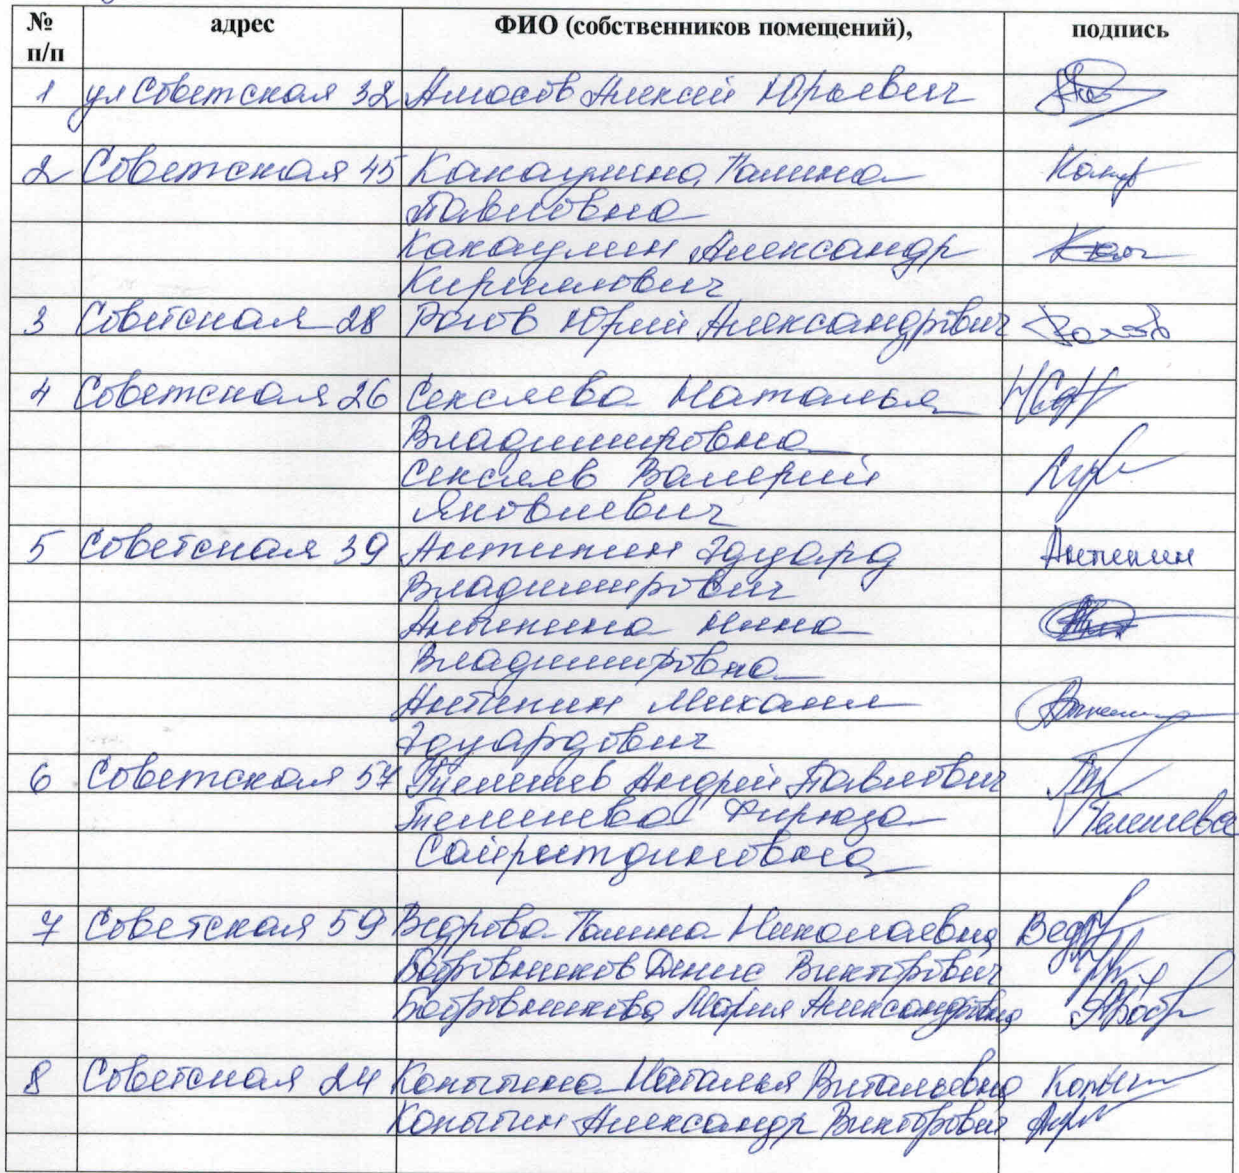 № п/п адрес ФИО (собственников помещений), подпись
1 ул Советская 32 Амосов Алексей Юрьевич
2 Советская 45 Какаулина Галина
Павловна
Какаулин Александр
Кириллович
3 Советская 28 Рогов Юрий Александрович Рогов
4 Советская 26 Сексяева Наталья
Владимировна
Сексяев Валерий
Яковлевич
5 Советская 39 Антипин Эдуард Антипин
Владимирович
Антипина Нина
Владимировна
Антипин Михаил
Эдуардович
6 Советская 57 Телешев Андрей Павлович
Телешева Фирюза Телешева
Сайритдиновна
7 Советская 59 Ведрова Галина Николаевна Вед
Бобровников Денис Викторович
Бобровникова Мария Александровна
8 Советская 24 Копытина Наталья Витальевна
Копытин Александр Викторович